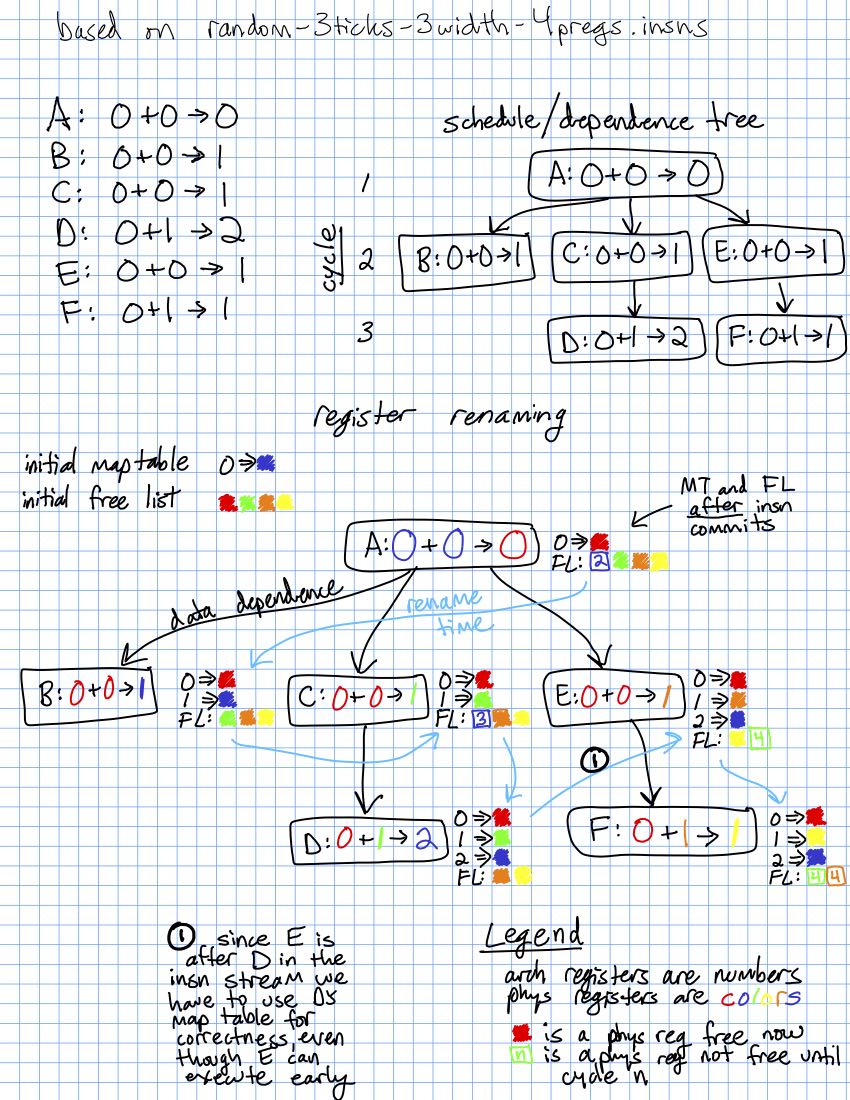 based on random-3ticks-3width-4pregs.insns
A: 0+0→0
B: 0+0→1
C: 0+0→1
D: 0+1→2
E: 0+0→1
F: 0+1→1
schedule/dependence tree
cycle
1
A: 0+0→0
2
B: 0+0→1
C: 0+0→1
E: 0+0→1
3
D: 0+1→2
F: 0+1→1
register renaming
initial maptable 0⇒
initial free list
MT and FL
after insn
commits
A: 0+0→0
0⇒
FL: 2
data dependence
rename
time
B: 0+0→1
0⇒
1⇒
FL:
C: 0+0→1
0⇒
1⇒
FL: 3
E: 0+0→1
0⇒
1⇒
2⇒
FL: 4
1
D: 0+1→2
0⇒
1⇒
2⇒
FL:
F: 0+1→1
0⇒
1⇒
2⇒
FL: 4 4
1 since E is
after D in the
insn stream we
have to use D's
map table for
correctness, even
though E can
execute early
Legend
arch registers are numbers
phys registers are colors
is a phys reg free now
n is a phys reg not free until
cycle n